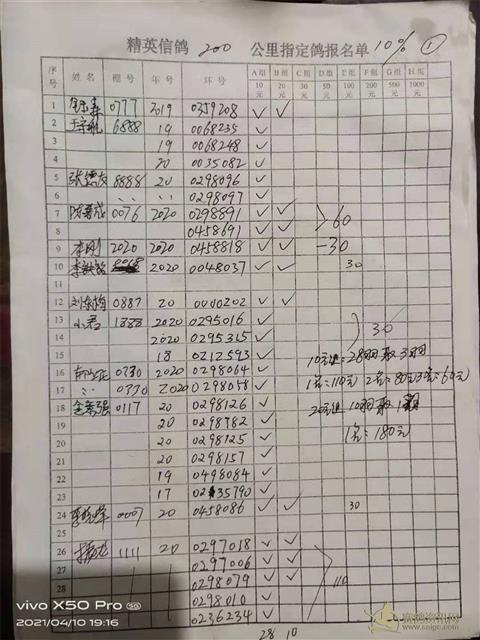 精英信鸽 200 公里指定鸽报名单 10% ①
序号 姓名 棚号 年号 环号 A组10元 B组20元 C组30元 D组50元 E组100元 F组200元 G组500元 H组1000元
1 0777 2019 0359208 ✓ ✓
2 6888 19 0068235 ✓
3 19 0068248 ✓
4 20 0035082 ✓
5 张德友 8888 20 0298096 ✓
6 0298097 ✓
7 0076 2020 0298891 ✓ ✓
8 0458691 ✓ ✓ 60
9 李刚 2020 2020 0458818 ✓ ✓ -30
10 2020 0048037 ✓ ✓ 30
11
12 0887 20 0000202 ✓ ✓
13 小君 1888 2020 0295016 ✓
14 2020 0295315 ✓ 30
15 18 0212593 ✓
10元组=28羽取3羽
16 0730 2020 0298064 ✓
17 0730 2020 0298058 ✓
1名=110元 2名=80元 3名=60元
18 0117 20 0298126 ✓
20元组 10羽取1羽
19 20 0298782 ✓
20 20 0298125 ✓
1名=180元
21 20 0298157 ✓
22 19 0498084 ✓
23 17 0235790 ✓
24 0007 20 0458086 ✓ ✓ 30
25
26 1111 20 0297018 ✓ ✓
27 0297006 ✓ ✓
28 0298079 ✓ ✓ 110
0298010 ✓
0236234 ✓
28 10
vivo X50 Pro
2021/04/10 19:16